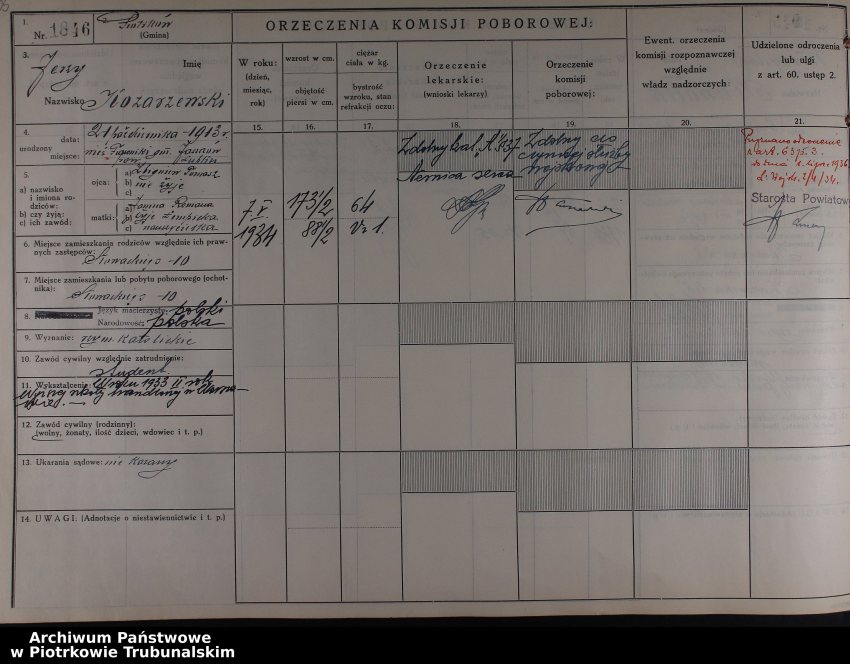 1.
Nr. 1846
Piotrków
(Gmina)
ORZECZENIA KOMISJI POBOROWEJ:
3.
Jerzy
Imię
Nazwisko
Kozarzewski
W roku:
(dzień,
miesiąc,
rok)
wzrost w cm.
objętość
piersi w cm.
ciężar
ciała w kg.
bystrość
wzroku, stan
refrakcji oczu:
Orzeczenie
lekarskie:
(wnioski lekarzy)
Orzeczenie
komisji
poborowej:
Ewent. orzeczenia
komisji rozpoznawczej
względnie
władz nadzorczych.
Udzielone odroczenia
lub ulgi
z art. 60. ustęp 2.
15.
16.
17.
18.
19.
20.
21.
4.
urodzony
data:
21 października - 1913 r.
miejsce:
gm. Janów
Lublin
5.
a) nazwisko
i imiona ro-
dziców:
b) czy żyją:
c) ich zawód:
ojca:
a)
b)
c)
Zbigniew Tomasz
nie żyje
matki:
a)
b)
c)
Janina Romana
żyje
nauczycielka
7. V.
1934
173 1/2
88/2
64
V= 1.
Zdolny kat. A
serca
Zdolny do
czynnej służby
wojskowej
Przyznano odroczenie
z art. 63 p. 3.
do dnia 1. lipca 1936
Starosta Powiatow
6. Miejsce zamieszkania rodziców względnie ich praw-
nych zastępców:
Słowackiego - 10
7. Miejsce zamieszkania lub pobytu poborowego (ochot-
nika):
Słowackiego - 10
8.
Język macierzysty:
polski
Narodowość:
polska
9. Wyznanie:
rzym. katolickie
10. Zawód cywilny względnie zatrudnienie:
student
11. Wykształcenie:
W roku 1933 II rok
Wyższej szkoły handlowej w Warsza-
wie. —
12. Zawód cywilny (rodzinny):
(wolny, żonaty, ilość dzieci, wdowiec i t. p.)
13. Ukarania sądowe:
nie karany
14. UWAGI: (Adnotacje o niestawiennictwie i t. p.)
Archiwum Państwowe
w Piotrkowie Trybunalskim